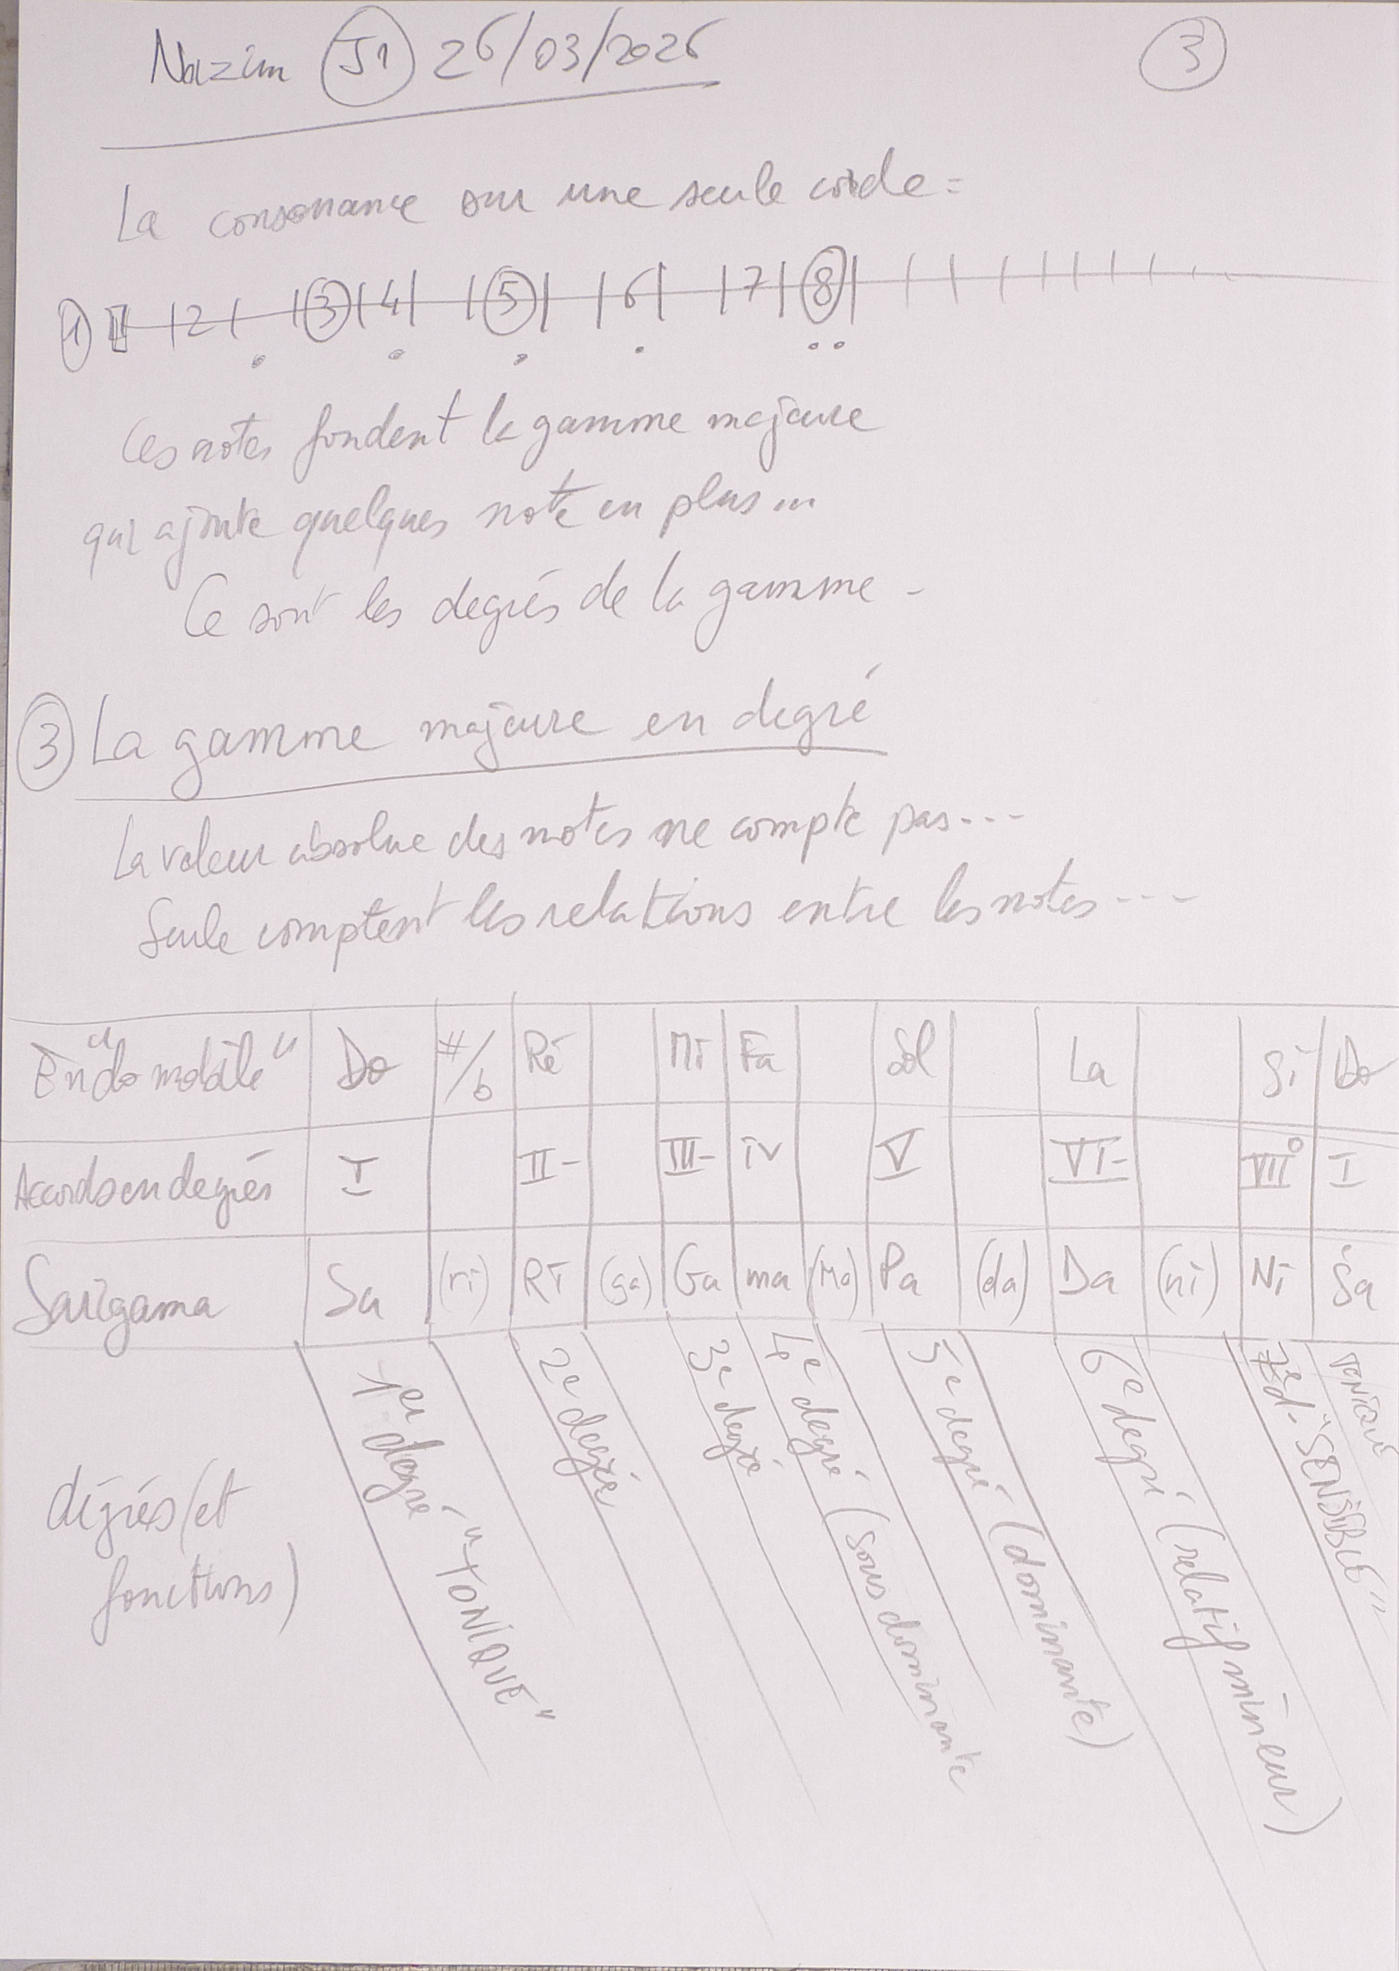 Nazim J1 26/03/2026
3
La consonance sur une seule corde =
1 2 3 4 5 6 7 8
Ces notes fondent la gamme majeure
qui ajoute quelques note en plus...
Ce sont les degrés de la gamme -
3 La gamme majeure en degré
La valeur absolue des notes ne compte pas...
Seule comptent les relations entre les notes...
En "do mobile" Do #/b Ré Mi Fa Sol La Si Do
Accords en degrés I II- III- IV V VI- VII° I
Sarigama Sa (ri) Ri (ga) Ga ma (Ma) Pa (da) Da (ni) Ni Sa
degrés (et
fonctions)
1er degré "TONIQUE"
2e degré
3e degré
4e degré (sous dominante
5e degré (dominante)
6e degré (relatif mineur)
7e d. "SENSIBLE"
TONIQUE